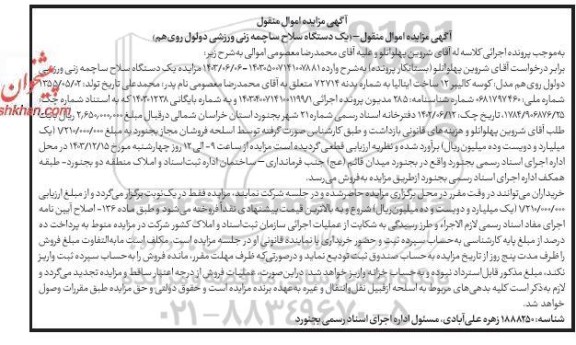 آگهی مزایده اموال منقول
آگهی مزایده اموال منقول – (یک دستگاه سلاح ساچمه زنی ورزشی دولول روی هم)
به‌موجب پرونده اجرائی کلاسه له آقای شروین پهلوانلو و علیه آقای محمدرضا معصومی اموالی به‌شرح زیر:
برابر درخواست آقای شروین پهلوانلو (بستانکار پرونده) به‌شرح وارده مزایده یک دستگاه سلاح ساچمه زنی ورزشی
دولول روی هم مدل: کوسه کالیبر ۱۲ ساخت ایتالیا به شماره بدنه ۷۲۷۱۴ متعلق به آقای محمدرضا معصومی نام پدر: محمدعلی تاریخ تولد:
شماره ملی: شماره شناسنامه: ۲۸۵ مدیون پرونده اجرائی و به شماره بایگانی که به استناد شماره چک:
تاریخ چک: دفترخانه اسناد رسمی شماره ۲۱ شهر بجنورد استان خراسان شمالی درقبال مبلغ ۲,۶۵۰,۰۰۰,۰۰۰ ریال بابت
طلب آقای شروین پهلوانلو و هزینه های قانونی بازداشت و طبق کارشناس صورت گرفته توسط اسلحه فروشان مجاز بجنورد به مبلغ (یک
میلیارد و دویست وده میلیون ریال) برآورد شده و نظریه ارزیابی قطعی گردیده است مزایده از ساعت ۹ الی ۱۲ روز چهارشنبه مورخ ۱۴۰۳/۱۲/۱۵ در محل
اداره اجرای اسناد رسمی بجنورد واقع در بجنورد میدان قائم (عج) جنب فرمانداری – ساختمان اداره ثبت‌اسناد و املاک منطقه دو بجنورد- طبقه
همکف اداره اجرای اسناد رسمی بجنورد ازطریق مزایده به‌فروش می‌رسد.
خریداران می‌توانند در وقت مقرر در محل برگزاری مزایده حاضر شده و در جلسه شرکت نمایند، مزایده فقط در یک نوبت برگزار می‌گردد و از مبلغ ارزیابی
(یک میلیارد و دویست و ده میلیون ریال) شروع و به بالاترین قیمت پیشنهادی نقداً فروخته می‌شود و طبق ماده ۱۳۶– اصلاح آیین نامه
اجرای مفاد اسناد رسمی لازم الاجراء و طرز رسیدگی به شکایت از عملیات اجرائی سازمان ثبت‌اسناد و املاک کشور شرکت در مزایده منوط به پرداخت ده
درصد از مبلغ پایه کارشناسی به‌حساب سپرده ثبت و حضور خریدار یا نماینده قانونی او در جلسه مزایده است. مکلف است مابه‌التفاوت مبلغ فروش
را ظرف مدت پنج روز از تاریخ مزایده به حساب صندوق ثبت تودیع نماید و درصورتی‌که ظرف مهلت مقرر، مانده فروش را به‌حساب سپرده ثبت واریز
نکند، مبلغ مذکور قابل استرداد نبوده و به حساب خزانه واریز خواهد شد، دراین‌صورت، عملیات فروش از درجه اعتبار ساقط و مزایده تجدید می‌گردد و
لازم به‌ذکر است کلیه بدهی‌های مربوطه به اسلحه ازقبیل نقل‌وانتقال و غیره به‌عهده برنده مزایده است و حقوق دولتی و حق مزایده طبق مقررات وصول
خواهد شد.
شناسه: ۱۸۸۸۲۵۰ زهره علی‌آبادی، مسئول اداره اجرای اسناد رسمی بجنورد
۰۲۱-۸۸۳۴۹۶۷۰